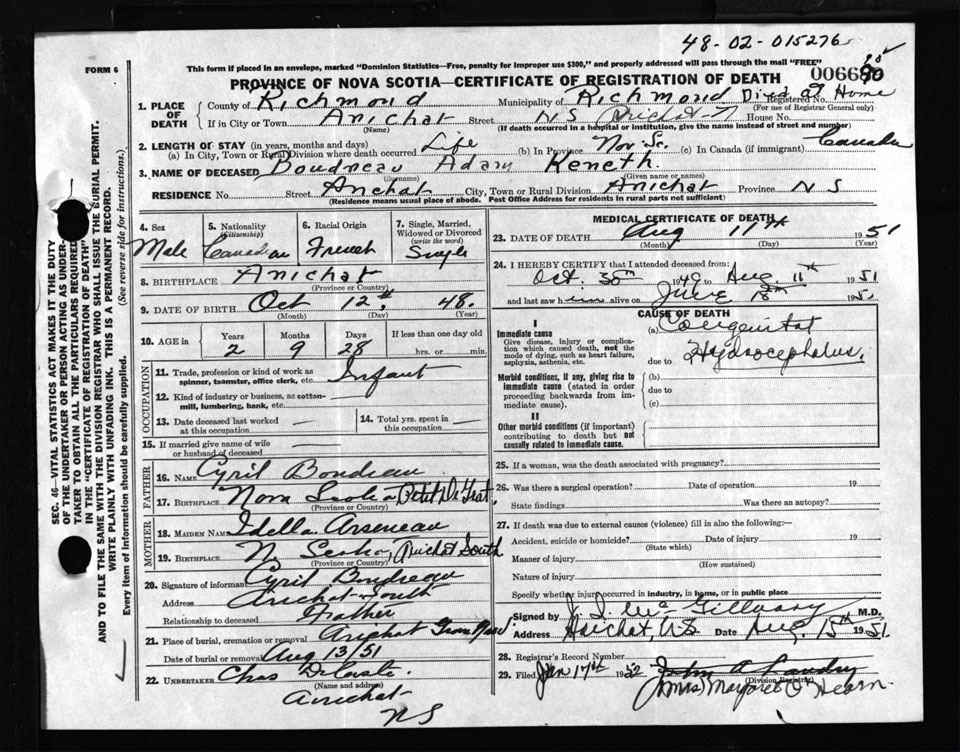 48-02-015276
FORM 6
This form if placed in an envelope, marked "Dominion Statistics—Free, penalty for improper use $300," and properly addressed will pass through the mail "FREE"
PROVINCE OF NOVA SCOTIA—CERTIFICATE OF REGISTRATION OF DEATH
1. PLACE OF DEATH
County of Richmond Municipality of Richmond Died at Home Registered No.
(For use of Registrar General only)
If in City or Town Arichat Street N S House No.
(Name) (If death occurred in a hospital or institution, give the name instead of street and number)
2. LENGTH OF STAY (in years, months and days)
(a) In City, Town or Rural Division where death occurred Life (b) In Province Nov. Sc. (c) In Canada (if immigrant) Canada
3. NAME OF DECEASED Boudreau Adam Keneth.
(Surname) (Given name or names)
RESIDENCE No. Street Arichat City, Town or Rural Division Arichat Province N S
(Residence means usual place of abode. Post Office Address for residents in rural parts not sufficient)
4. Sex Male
5. Nationality (Citizenship) Canadian
6. Racial Origin French
7. Single, Married, Widowed or Divorced (write the word) Single
8. BIRTHPLACE Arichat
(Province or Country)
9. DATE OF BIRTH Oct 12th 48.
(Month) (Day) (Year)
10. AGE in Years 2 Months 9 Days 28 If less than one day old hrs. or min.
OCCUPATION
11. Trade, profession or kind of work as spinner, teamster, office clerk, etc. Infant
12. Kind of industry or business, as cotton-mill, lumbering, bank, etc. —
13. Date deceased last worked at this occupation —
14. Total yrs. spent in this occupation —
15. If married give name of wife or husband of deceased —
FATHER
16. NAME Cyril Boudreau
17. BIRTHPLACE Nova Scotia Petit De Grat.
(Province or Country)
MOTHER
18. MAIDEN NAME Idella Arseneau
19. BIRTHPLACE N. Scotia, Arichat South
(Province or Country)
20. Signature of informant Cyril Boudreau
Address Arichat South
Relationship to deceased Father
21. Place of burial, cremation or removal Arichat
Date of burial or removal Aug 13/51
22. UNDERTAKER Chas
(Name and address)
Arichat
N S
MEDICAL CERTIFICATE OF DEATH
23. DATE OF DEATH Aug 11th 1951
(Month) (Day) (Year)
24. I HEREBY CERTIFY that I attended deceased from:
Oct. 30th 1949 to Aug. 11th 1951
and last saw him alive on June 18th 1951
CAUSE OF DEATH
I
Immediate cause
Give disease, injury or complication which caused death, not the mode of dying, such as heart failure, asphyxia, asthenia, etc.
(a) Congenital
due to Hydrocephalus.
Morbid conditions, if any, giving rise to immediate cause (stated in order proceeding backwards from immediate cause).
(b)
due to
(c)
II
Other morbid conditions (if important) contributing to death but not causally related to immediate cause.
25. If a woman, was the death associated with pregnancy?
26. Was there a surgical operation? Date of operation 19
State findings Was there an autopsy?
27. If death was due to external causes (violence) fill in also the following:—
Accident, suicide or homicide? Date of injury 19
(State which)
Manner of injury
(How sustained)
Nature of injury
Specify whether injury occurred in industry, in home, or in public place
Signed by Mc Gillvary M.D.
Address Arichat, N.S Date Aug. 15th 1951.
28. Registrar's Record Number
29. Filed Jan 17th 1952 John A Landry
(Division Registrar)
(Mrs) Margaret O'Hearn.
SEC. 46—VITAL STATISTICS ACT MAKES IT THE DUTY OF THE UNDERTAKER OR PERSON ACTING AS UNDERTAKER TO OBTAIN ALL THE PARTICULARS REQUIRED IN THE "CERTIFICATE OF REGISTRATION OF DEATH" AND TO FILE THE SAME WITH THE DIVISION REGISTRAR WHO SHALL ISSUE THE BURIAL PERMIT.
WRITE PLAINLY WITH UNFADING INK. THIS IS A PERMANENT RECORD.
Every item of information should be carefully supplied. (See reverse side for instructions.)